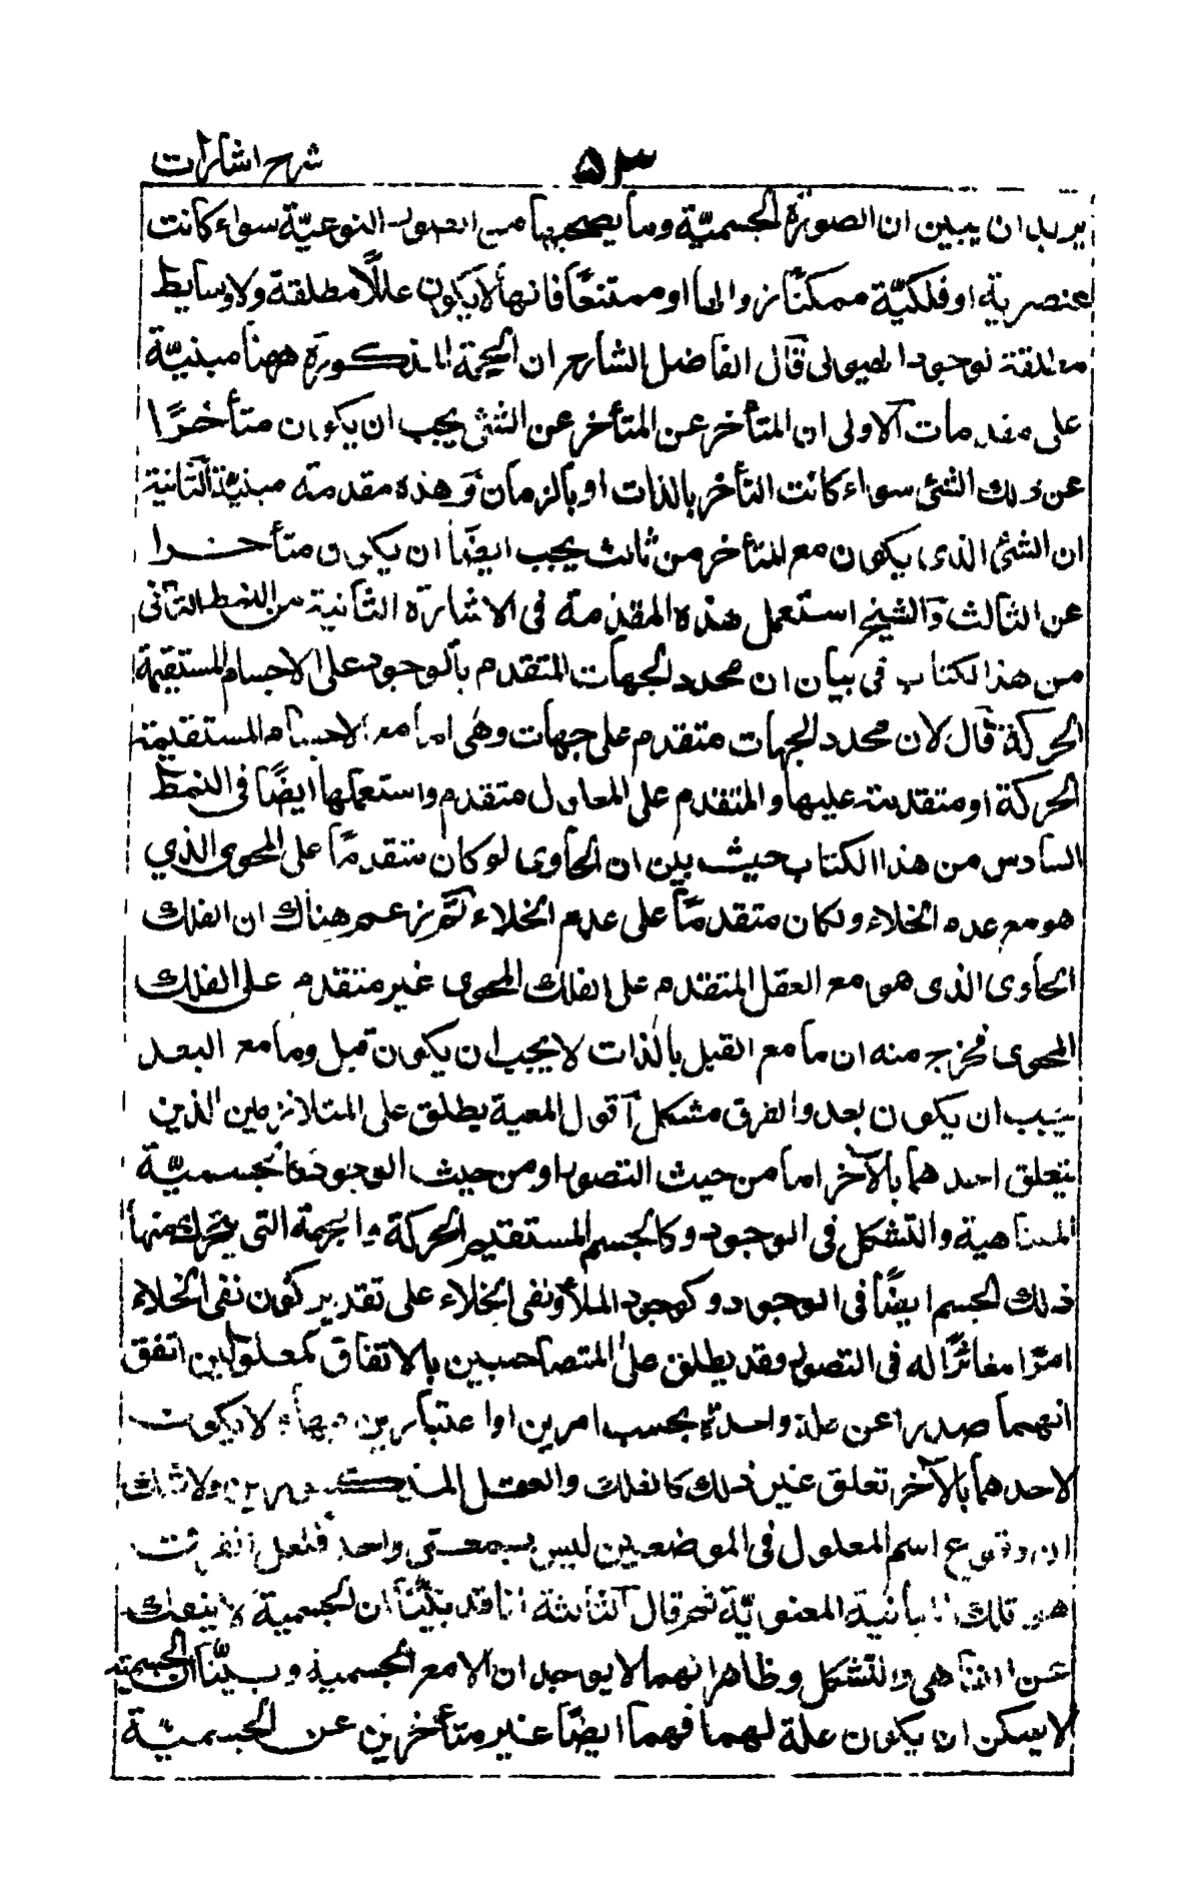 شرح اشارات ٥٣
يريد ان يبين ان الصورة الجسميّة وما يصحبها من الصور النوعيّة سواء كانت
عنصرية او فلكيّة ممكنًا زوالها او ممتنعًا فانها لا يكون عللًا مطلقة ولا وسايط
مطلقة لوجود الهيولى قال الفاضل الشارح ان الحجة المذكورة ههنا مبنيّة
على مقدمات الاولى ان المتأخر عن المتأخر عن الشئ يجب ان يكون متأخرًا
عن ذلك الشئ سواء كانت التأخر بالذات او بالزمان وهذه مقدمة مبنية الثانية
ان الشئ الذى يكون مع المتأخر من ثالث يجب ايضًا ان يكون متأخرا
عن الثالث والشيخ استعمل هذه المقدمة فى الاشارة الثانية من النمط الثانى
من هذا الكتاب فى بيان ان محدد الجهات المتقدم بالوجود على الاجسام المستقيمة
الحركة قال لان محدد الجهات متقدم على جهات وهى اما مع الاجسام المستقيمة
الحركة او متقدمة عليها والمتقدم على المعاول متقدم واستعملها ايضًا فى النمط
السادس من هذا الكتاب حيث بين ان الحاوى لو كان متقدمًا على المحوى الذي
هو مع عدم الخلاء ولكان متقدمًا على عدم الخلاء ثم زعم هناك ان الفلك
الحاوى الذى هو مع العقل المتقدم على الفلك المحوى غير متقدم على الفلك
المحوى فخرج منه ان ما مع القبل بالذات لا يجب ان يكون قبل وما مع البعد
يجب ان يكون بعد والفرق مشكل اقول المعية يطلق على المتلازمين الذين
يتعلق احدهما بالآخر اما من حيث التصور او من حيث الوجود كالجسميّة
المتناهية والتشكل فى الوجود وكالجسم المستقيم الحركة والجهة التى يتحرك منها
ذلك الجسم ايضًا فى الوجود وكوجود الملأ ونفى الخلاء على تقدير كون نفى الخلاء
امرًا مغائرًا له فى التصور وقد يطلق على المتصاحبين بالاتفاق كمعلولين اتفق
انهما صدرا عن علة واحدة بحسب امرين او اعتبارين فيها لا يكون
لاحدهما بالآخر تعلق غير ذلك كالفلك والعقل المذكورين ولا شك
ان وقوع اسم المعلول فى الموضعين ليس بمعنى واحد فلعل الفرق
هو تلك المبائنة المعنويّة ثم قال الثالثة انا قد بيّنّا ان الجسمية لا ينفك
عن التناهى والتشكل وظاهر انهما لا يوجدان الا مع الجسمية وبيّنّا ان الجسمية
لا يمكن ان يكون علة لهما فهما ايضًا غير متأخرين عن الجسميّة